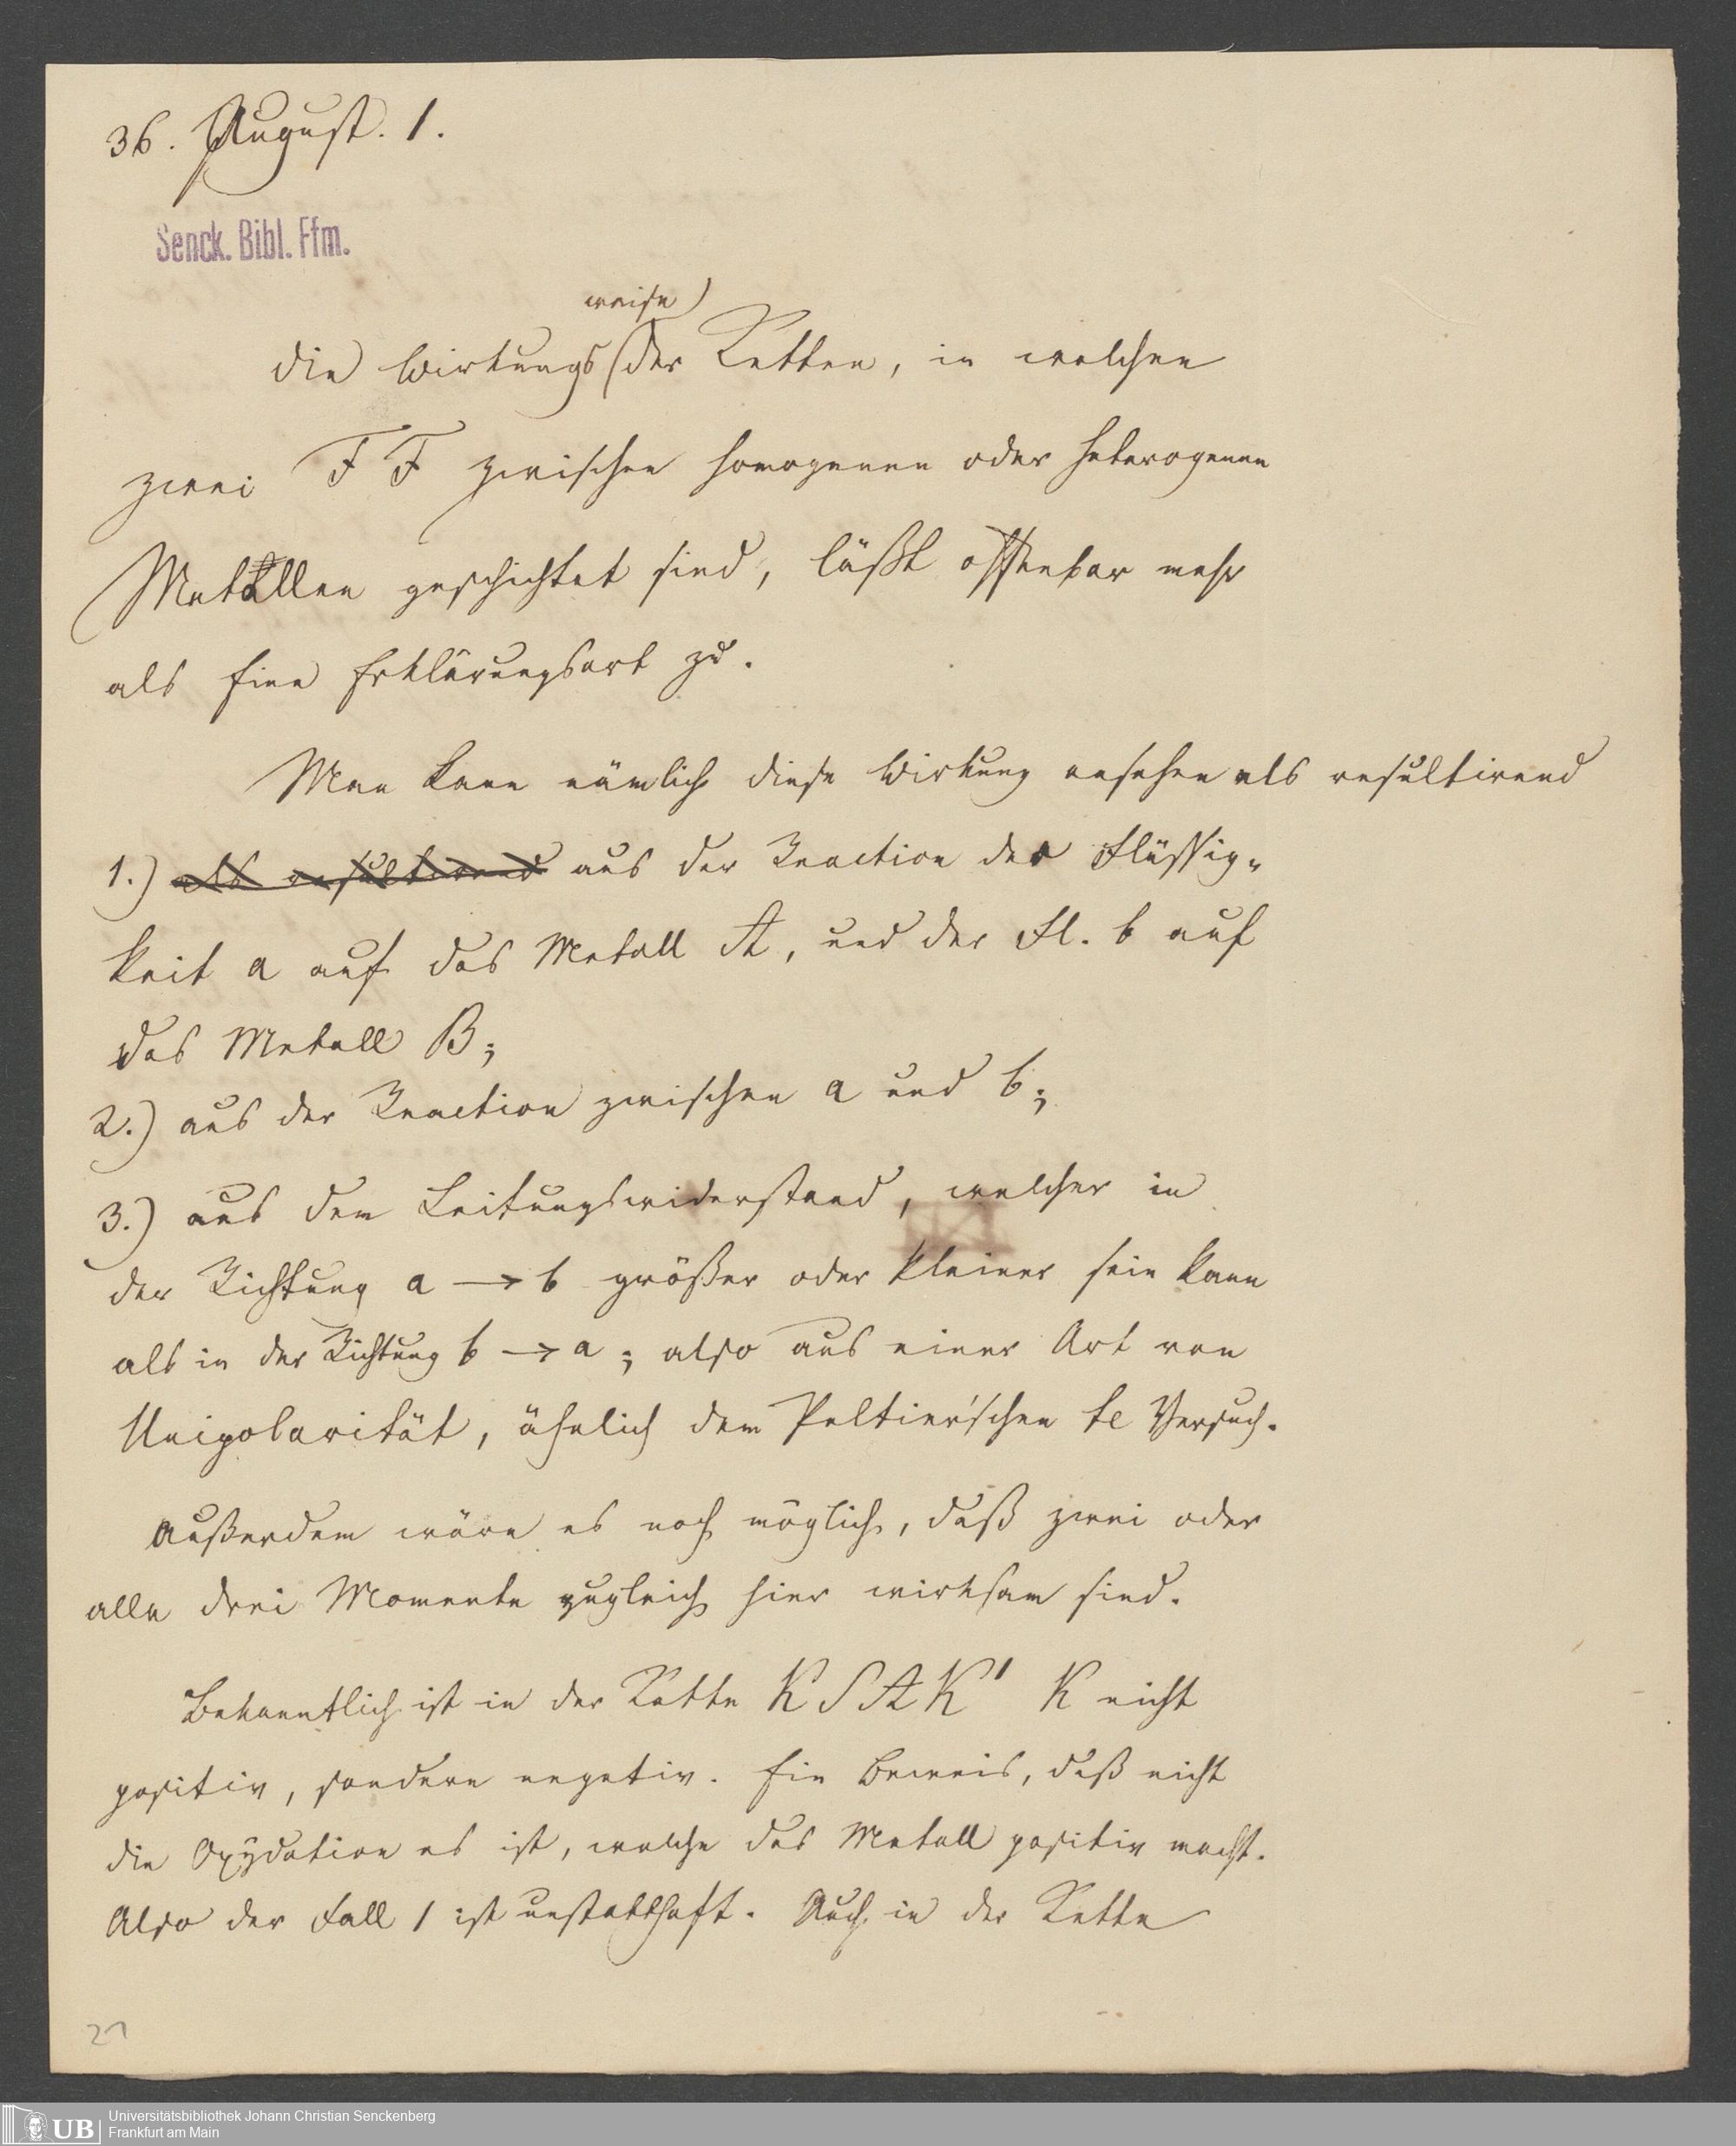 36. August. 1.
Senck. Bibl. Ffm.
weise
die Wirkungs der Ketten, in welchen
zwei F F zwischen homogenen oder heterogenen
Metallen geschichtet sind, läßt offenbar mehr
als Eine Erklärungsart zu.
Man kann nämlich diese Wirkung ansehen als resultirend
1.) als resultirend aus der Reaction der Flüssig-
keit a auf das Metall A, und der Fl. b auf
das Metall B;
2.) aus der Reaction zwischen a und b;
3.) aus dem Leitungswiderstand, welcher in
der Richtung a → b größer oder kleiner sein kann
als in der Richtung b → a; also aus einer Art von
Unipolarität, ähnlich dem Peltier'schen te Versuch.
Außerdem wäre es noch möglich, daß zwei oder
alle drei Momente zugleich hier wirksam sind.
Bekanntlich ist in der Kette K S A K' K nicht
positiv, sondern negativ. Ein Beweis, daß nicht
die Oxydation es ist, welche das Metall positiv macht.
Also der Fall 1 ist unstatthaft. Auch in der Kette
21
UB Universitätsbibliothek Johann Christian Senckenberg
Frankfurt am Main